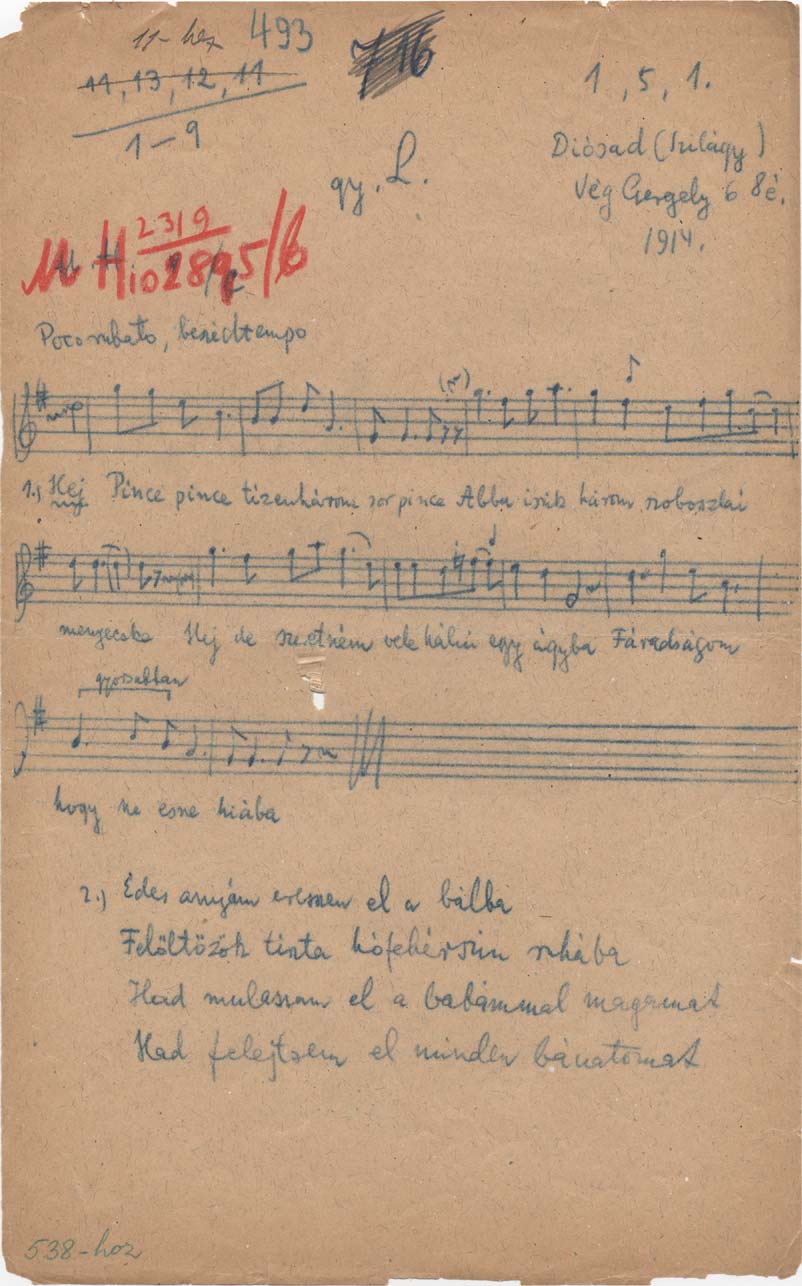 11-hez 493
716
11, 13, 12, 11
1-9
1, 5, 1.
Diósad (Szilágy)
Vég Gergely 68 é.
1914.
gy. L.
M H 2319
Poco rubato, beszédtempo
1.) Hej Pince pince tizenhárom sor pince Abba iszik három szoboszlai
menyecske Hej de szeretném vele hálni egy ágyba Fáradságom
gyorsabban
hogy ne esne hiába
2.) Édes anyám eresszen el a bálba
Felöltözök tiszta hófehérszin ruhába
Had mulassam el a babámmal magamat
Had felejtsem el minden bánatomat
538-hoz